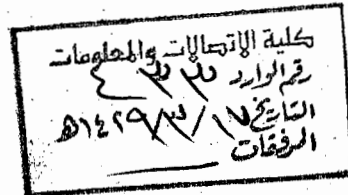 كلية الاتصالات والمعلومات
رقم الوارد ٤٣٣
التاريخ ١٧/٣/١٤٢٩هـ
المرفقات